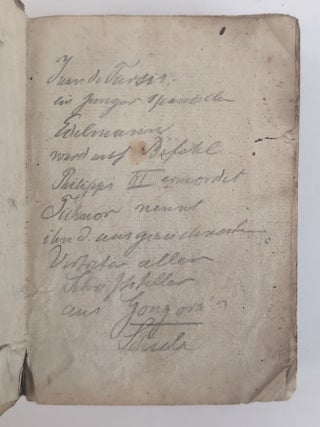 Juan de Tarsis.
ein junger spanischer
Edelmann
ward auf Befehl
Philipps III ermordet
Tiknor nennt
ihn d. ausgezeichnetsten
Vertreter aller
Schriftsteller
aus Gongora's
Schule